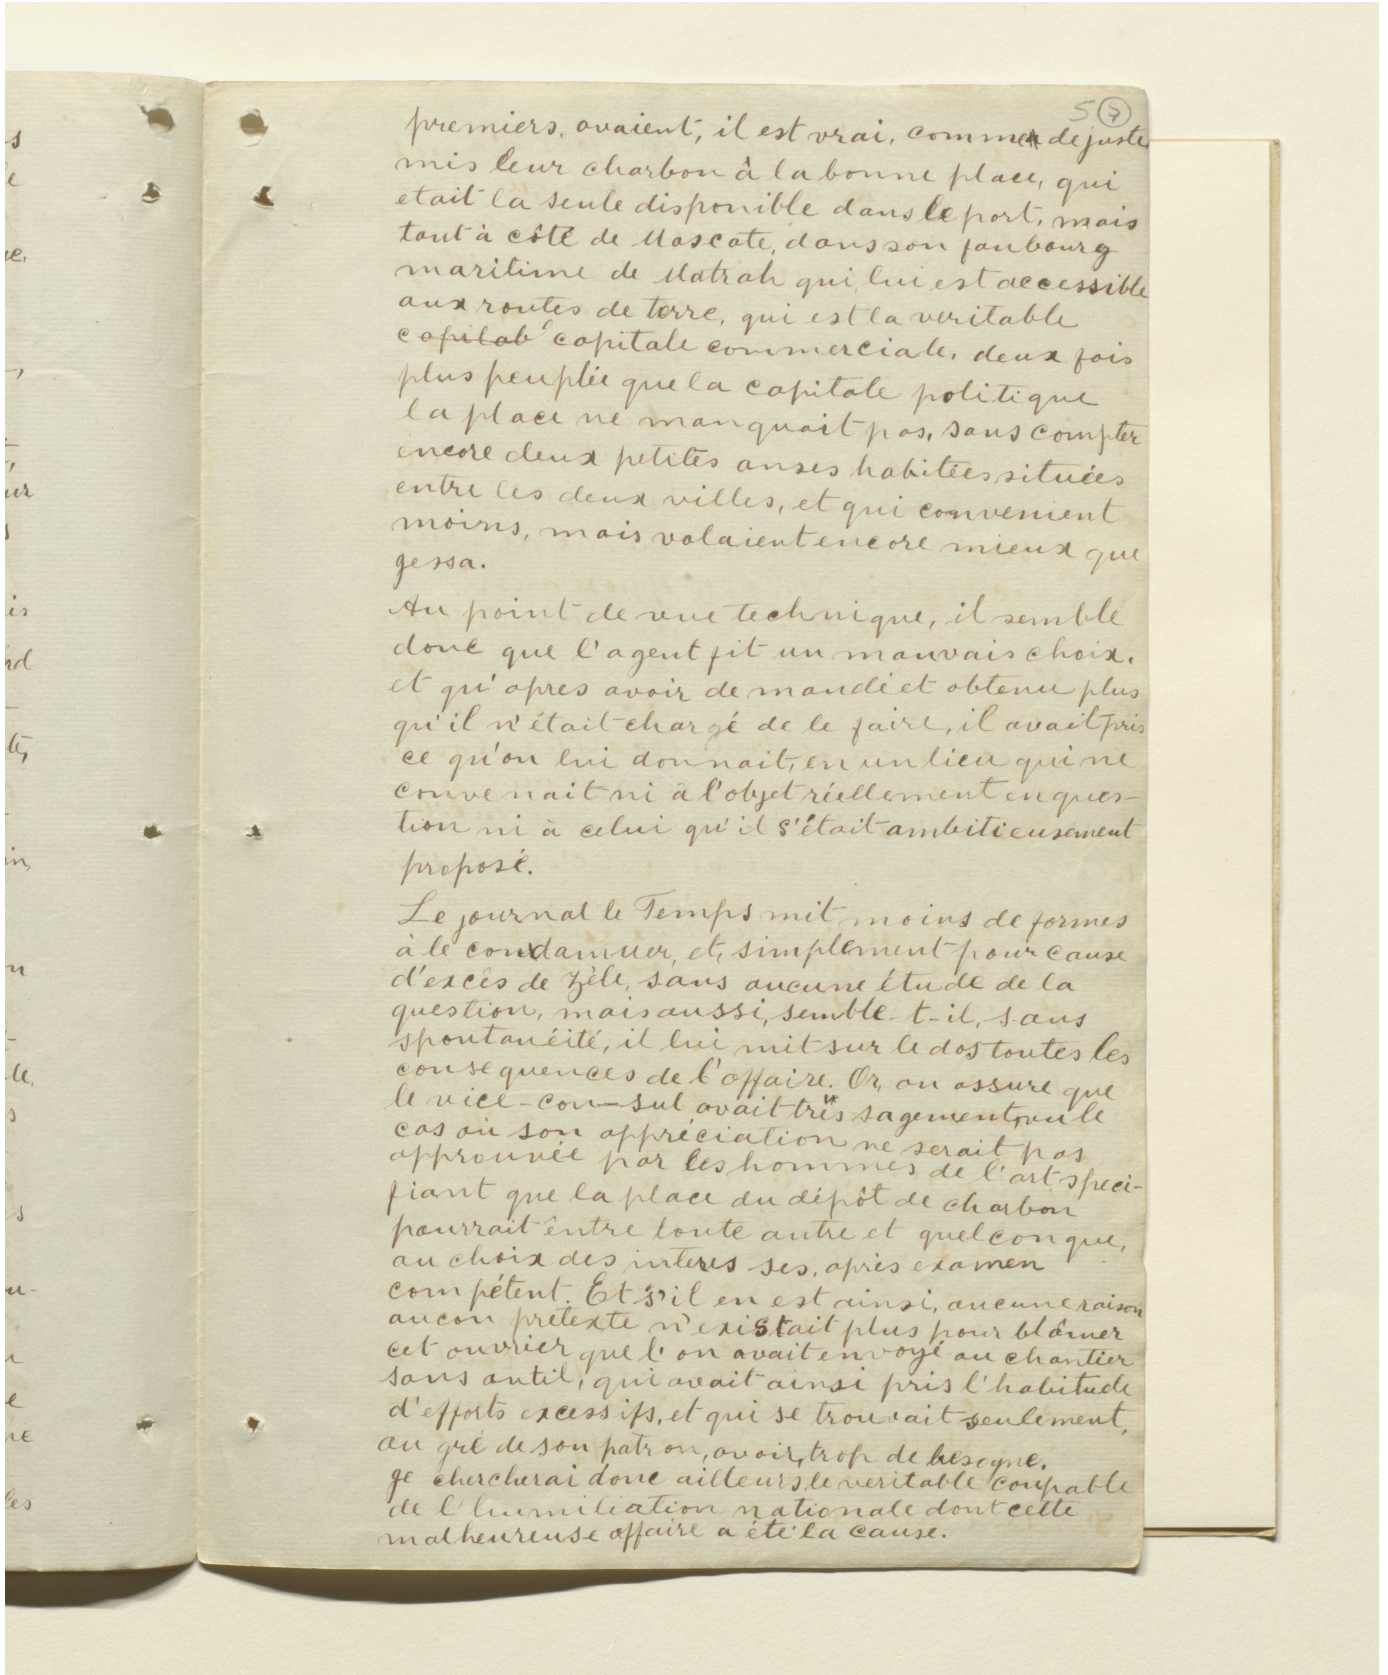 5 7
premiers, avaient, il est vrai, comme de juste
mis leur charbon à la bonne place, qui
etait la seule disponible dans le port, mais
tout à côté de Mascate, dans son faubourg
maritime de Matrah qui, lui est accessible
aux routes de terre, qui est la veritable
capitale capitale commerciale, deux fois
plus peuplée que la capitale politique
la place ne manquait pas, sans compter
encore deux petites anses habitées situées
entre les deux villes, et qui convenient
moins, mais valaient encore mieux que
gessa.
Au point de vue technique, il semble
donc que l'agent fit un mauvais choix,
et qu'apres avoir demandé et obtenu plus
qu'il n'était chargé de le faire, il avait pris
ce qu'on lui donnait, en un lieu qui ne
convenait ni à l'objet réellement en ques-
tion ni à celui qu'il s'était ambitieusement
proposé.
Le journal le Temps mit moins de formes
à le condamner, et, simplement pour cause
d'excès de zèle, sans aucune étude de la
question, mais aussi, semble-t-il, sans
spontanéité, il lui mit sur le dos toutes les
consequences de l'affaire. Or, on assure que
le vice-con-sul avait très sagement, vu le
cas où son appréciation ne serait pas
approuvée par les hommes de l'art speci-
fiant que la place du dépôt de charbon
pourrait êntre toute autre et quelconque,
au choix des interes ses, après examen
compétent. Et s'il en est ainsi, aucune raison
aucon pretexte n'existait plus pour blâmer
cet ouvrier que l'on avait envoyé au chantier
sans outil, qui avait ainsi pris l'habitude
d'efforts excessifs, et qui se trouvait seulement,
au gré de son patron, avoir, trop de besogne.
Je chercherai donc ailleurs le veritable coupable
de l'humiliation nationale dont cette
malheureuse affaire a été la cause.